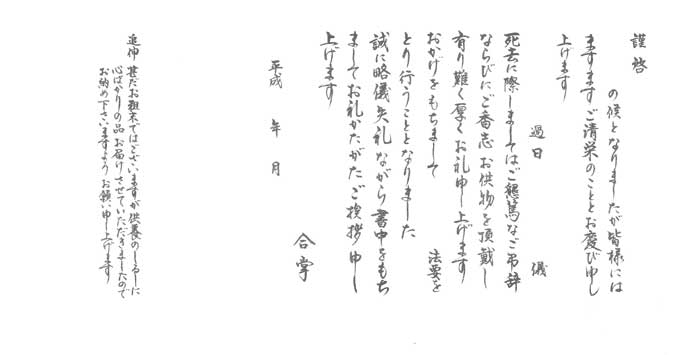 謹啓
の候となりましたが皆様には
ますますご清栄のこととお慶び申し
上げます
過日　儀
死去に際しましてはご懇篤なご弔辞
ならびにご香志お供物を頂戴し
有り難く厚くお礼申し上げます
おかげをもちまして　法要を
とり行うこととなりました
誠に略儀失礼ながら書中をもち
ましてお礼かたがたご挨拶申し
上げます
合掌
平成　年　月
追伸　甚だお粗末ではございますが供養のしるしに
心ばかりの品お届けさせていただきましたので
お納め下さいますようお願い申し上げます